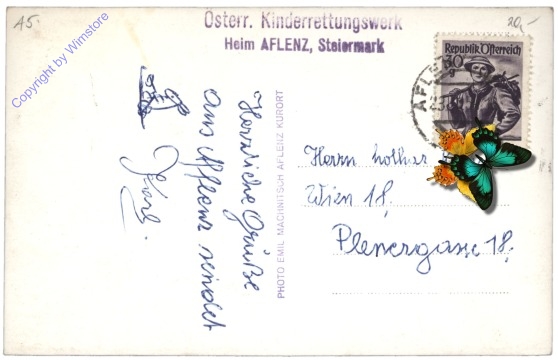 A5.
20,-
Copyright by Wimstore
Österr. Kinderrettungswerk
Heim AFLENZ, Steiermark
Republik Österreich
30
g
AFLE
Herzliche Grüße
aus Aflenz sendet
PHOTO EMIL MACHNITSCH AFLENZ KURORT
Herrn Lothar
Wien 18.
Plenergasse 18.